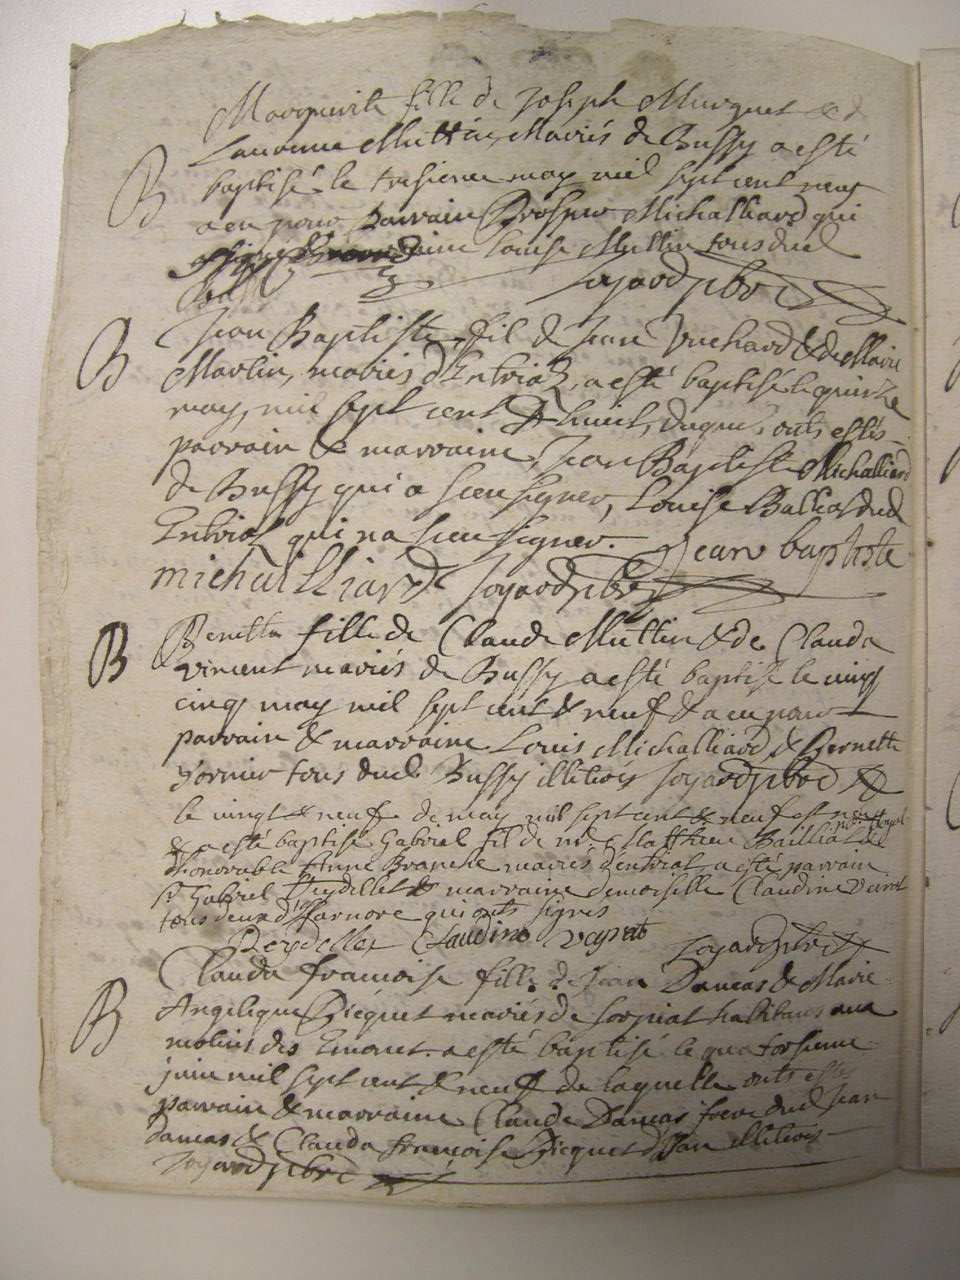 Marguerite fille de Joseph Murguet & de
Laurence Muttin Mariés de Bussy a esté
B baptisé le tresieme may mil sept cent neuf
a eu pour Parrain Prosper Michalliard qui
a signé marraine Louise Muttin tous dud
Bussy Joyard pbre
B Jean Baptiste fil de Jean Vuchard & de Marie
Martin, mariés d'Intriat, a esté baptisé le quinze
may, mil sept cent & huit, duquel onts estés
parrain & marraine, Jean Baptiste Michalliard
de Bussy qui a sceu signer, Louise Balliat dud
Intriat qui na sceu signer. Jean baptiste
michalliard Joyard pbre
B Bernette fille de Claude Muttin & de Clauda
vincent mariés de Bussy a esté baptisé le ving
cinq may mil sept cent & neuf & a eu pour
parrain & marraine Louis Michalliard & Bernette
tous dud Bussy illiterés Joyard pbre
le vingt & neuf de may mil sept cent & neuf est né
& a esté baptisé Gabriel fil de Matthieu Bailliat &
d'honnorable Anne Branche mariés d'entriat a esté parrain
Sr Gabriel Peydellet & marraine demoiselle Claudine
tous deux d'Isarnore qui onts signés
Peydellet Claudine vayret Joyard pbre
Clauda francoise fille de Jean Damas & Marie
B Angelique Picquet mariés de Sorpiat habitans aux
molins des a esté baptisé le quatorsieme
juin mil sept cent & neuf de laquelle onts estés
parrain & marraine Claude Damas frere dud Jean
Damas & Clauda francoise Picquet illiterés
Joyard pbre